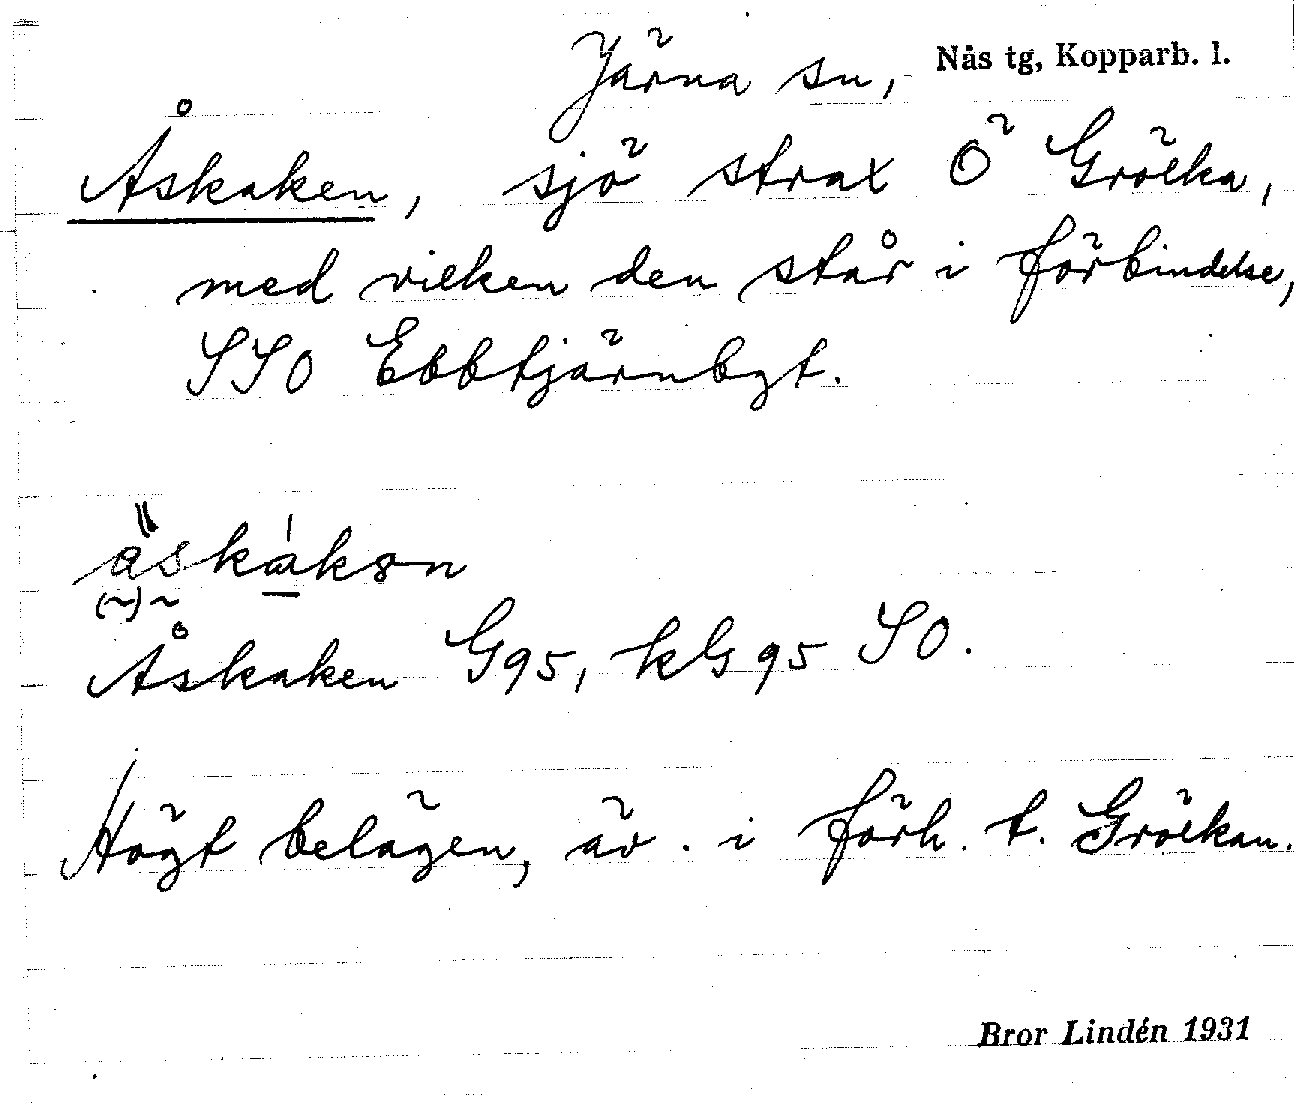 Järna sn, Nås tg, Kopparb. l.
Åskaken, sjö strax Ö Grölka,
med vilken den står i förbindelse,
SSO Ebbtjärnbgt.
Åskaken G95, kG95 SO.
Högt belägen, äv. i förh. t. Grölkan.
Bror Lindén 1931